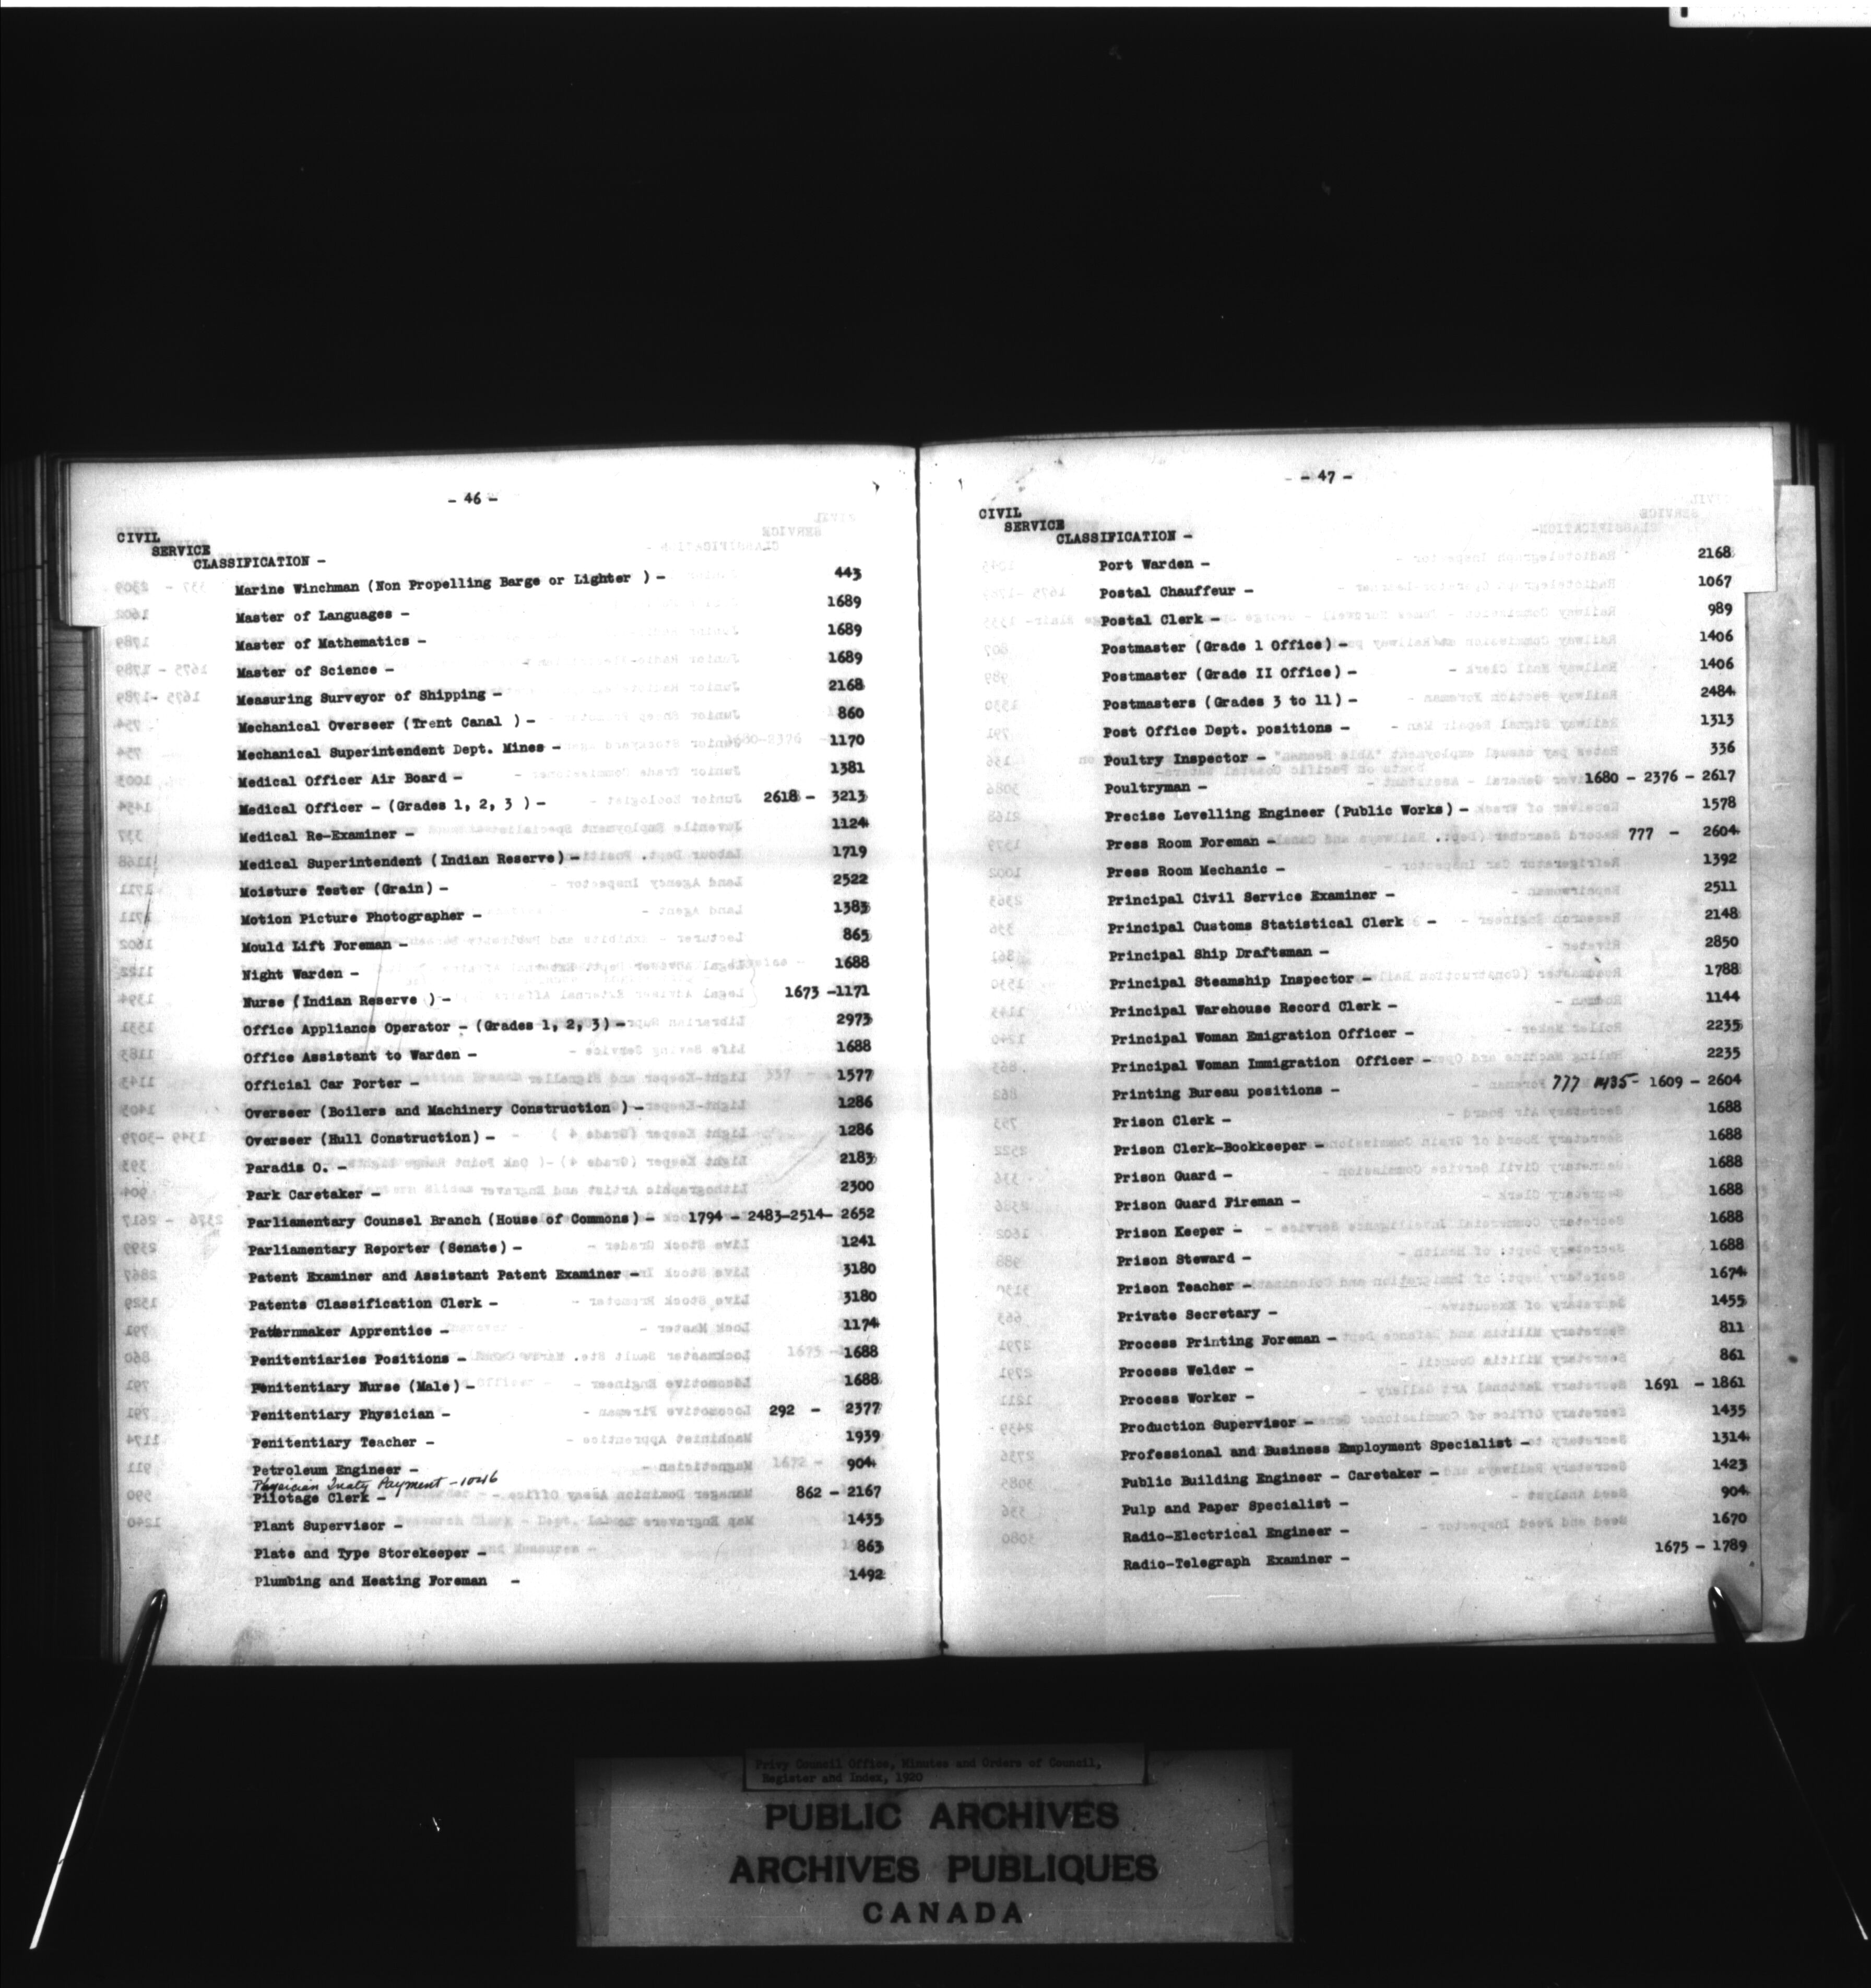 - 46 -
CIVIL
SERVICE
CLASSIFICATION -
Marine Winchman (Non Propelling Barge or Lighter ) - 443
Master of Languages - 1689
Master of Mathematics - 1689
Master of Science - 1689
Measuring Surveyor of Shipping - 2168
Mechanical Overseer (Trent Canal ) - 860
Mechanical Superintendent Dept. Mines - 1170
Medical Officer Air Board - 1381
Medical Officer - (Grades 1, 2, 3 ) - 2618 - 3213
Medical Re-Examiner - 1124
Medical Superintendent (Indian Reserve) - 1719
Moisture Tester (Grain) - 2522
Motion Picture Photographer - 1383
Mould Lift Foreman - 865
Night Warden - 1688
Nurse (Indian Reserve ) - 1673 -1171
Office Appliance Operator - (Grades 1, 2, 3) - 2973
Office Assistant to Warden - 1688
Official Car Porter - 1577
Overseer (Boilers and Machinery Construction ) - 1286
Overseer (Hull Construction) - 1286
Paradis O. - 2183
Park Caretaker - 2300
Parliamentary Counsel Branch (House of Commons) - 1794 - 2483-2514- 2652
Parliamentary Reporter (Senate) - 1241
Patent Examiner and Assistant Patent Examiner - 3180
Patents Classification Clerk - 3180
Paternmaker Apprentice - 1174
Penitentiaries Positions - 1688
Penitentiary Nurse (Male) - 1688
Penitentiary Physician - 292 - 2377
Penitentiary Teacher - 1939
Petroleum Engineer - 904
Physician Treaty Payment - 1046
Pilotage Clerk - 862 - 2167
Plant Supervisor - 1435
Plate and Type Storekeeper - 863
Plumbing and Heating Foreman - 1492
- 47 -
CIVIL
SERVICE
CLASSIFICATION -
Port Warden - 2168
Postal Chauffeur - 1067
Postal Clerk - 989
Postmaster (Grade 1 Office) - 1406
Postmaster (Grade II Office) - 1406
Postmasters (Grades 3 to 11) - 2484
Post Office Dept. positions - 1313
Poultry Inspector - 336
Poultryman - 1680 - 2376 - 2617
Precise Levelling Engineer (Public Works) - 1578
Press Room Foreman - 777 - 2604
Press Room Mechanic - 1392
Principal Civil Service Examiner - 2511
Principal Customs Statistical Clerk - 2148
Principal Ship Draftsman - 2850
Principal Steamship Inspector - 1788
Principal Warehouse Record Clerk - 1144
Principal Woman Emigration Officer - 2235
Principal Woman Immigration Officer - 2235
Printing Bureau positions - 777 1435 - 1609 - 2604
Prison Clerk - 1688
Prison Clerk-Bookkeeper - 1688
Prison Guard - 1688
Prison Guard Fireman - 1688
Prison Keeper - 1688
Prison Steward - 1688
Prison Teacher - 1674
Private Secretary - 1455
Process Printing Foreman - 811
Process Welder - 861
Process Worker - 1691 - 1861
Production Supervisor - 1435
Professional and Business Employment Specialist - 1314
Public Building Engineer - Caretaker - 1423
Pulp and Paper Specialist - 904
Radio-Electrical Engineer - 1670
Radio-Telegraph Examiner - 1675 - 1789
Privy Council Office, Minutes and Orders of Council,
Register and Index, 1920
PUBLIC ARCHIVES
ARCHIVES PUBLIQUES
CANADA